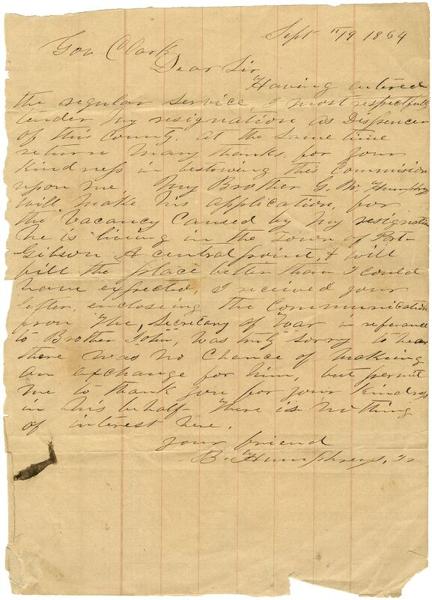 Sept 19 1864
Gov Clark
Dear Sir
Having entered
the regular service, I most respectfully
tender my resignation as Dispencer
of this County, at the same time
return many thanks for your
kindness in bestowing this Commission
upon me. My Brother G. W. Humphreys
will make his application, for
the Vacancy Caused by my resignation
he is living in the Town of Port-
Gibson A central point, & will
fill the place better than I could
have expected. I received your
letter, enclosing the Communication
from The, Secretary of War in referance
to Brother John, was truly sorry to hear
there was no Chance of making
an exchange for him, but permit
me to thank you for your kindness
in his behalf. There is nothing
of interest here.
your friend
B. Humphreys, Jr